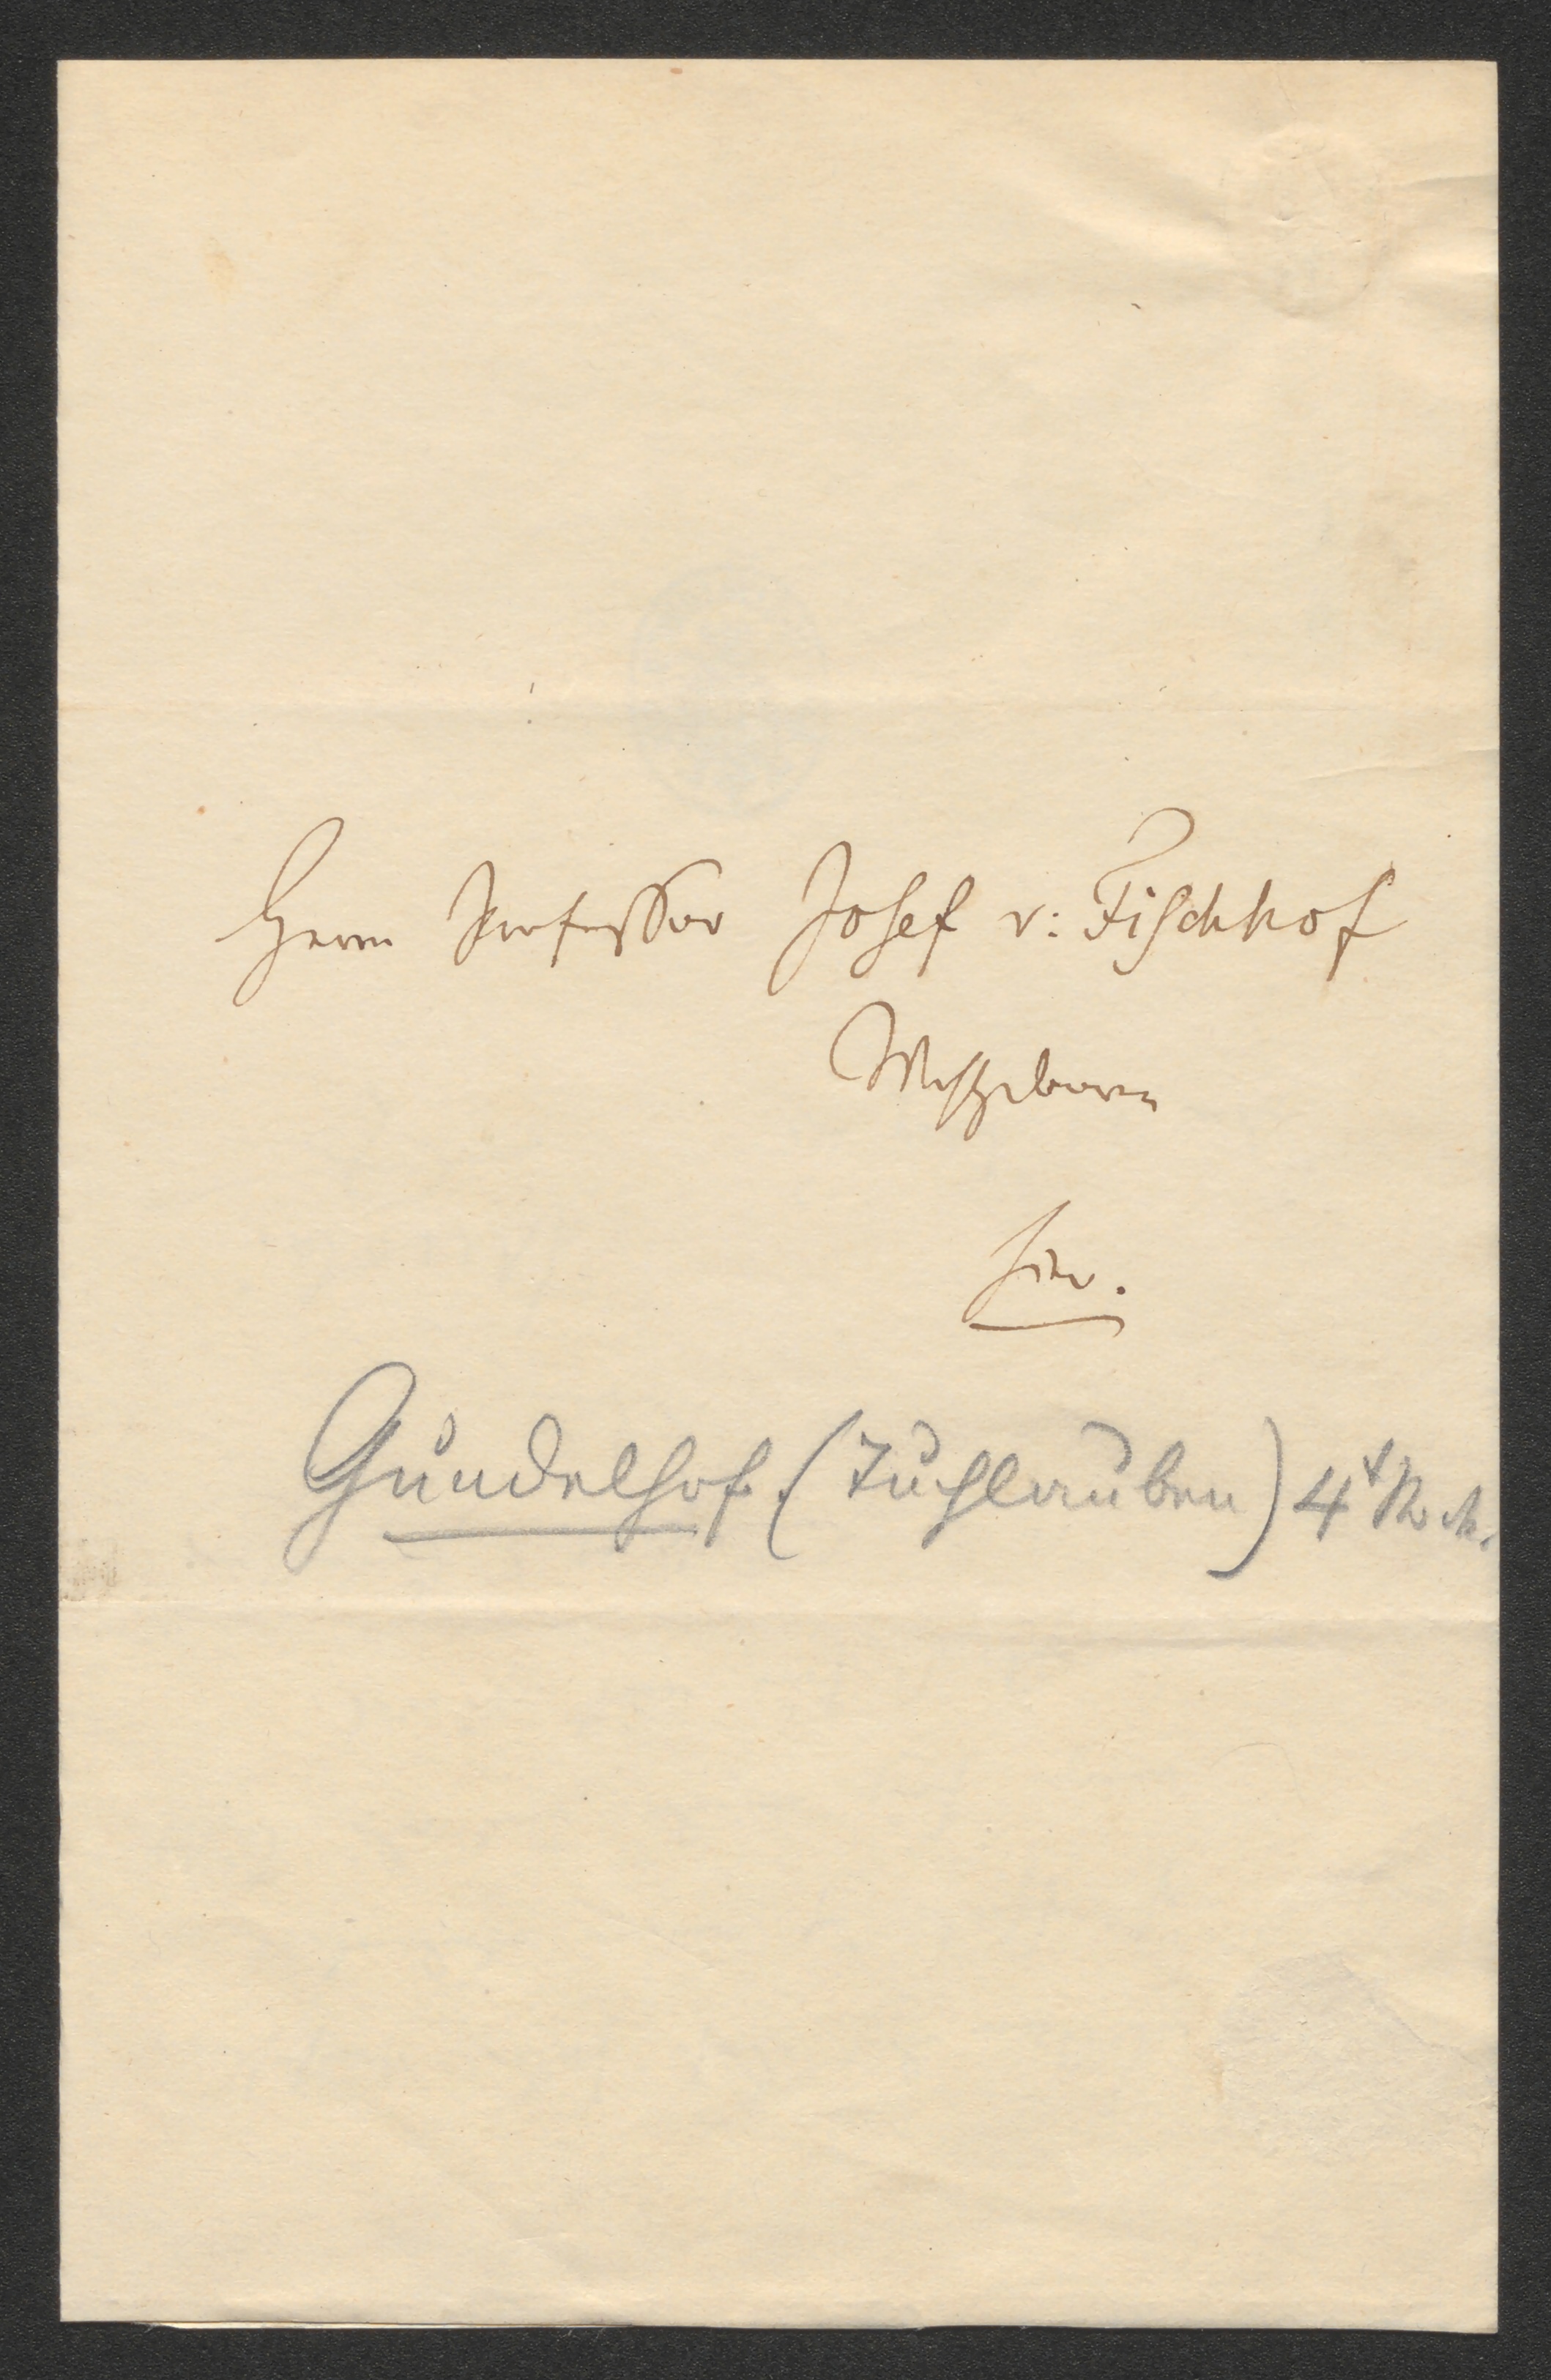 Herrn Professor Josef v: Fischhof
Wohlgeboren
hier.
Gundelhof. (Tuchlauben) 4t Stock.